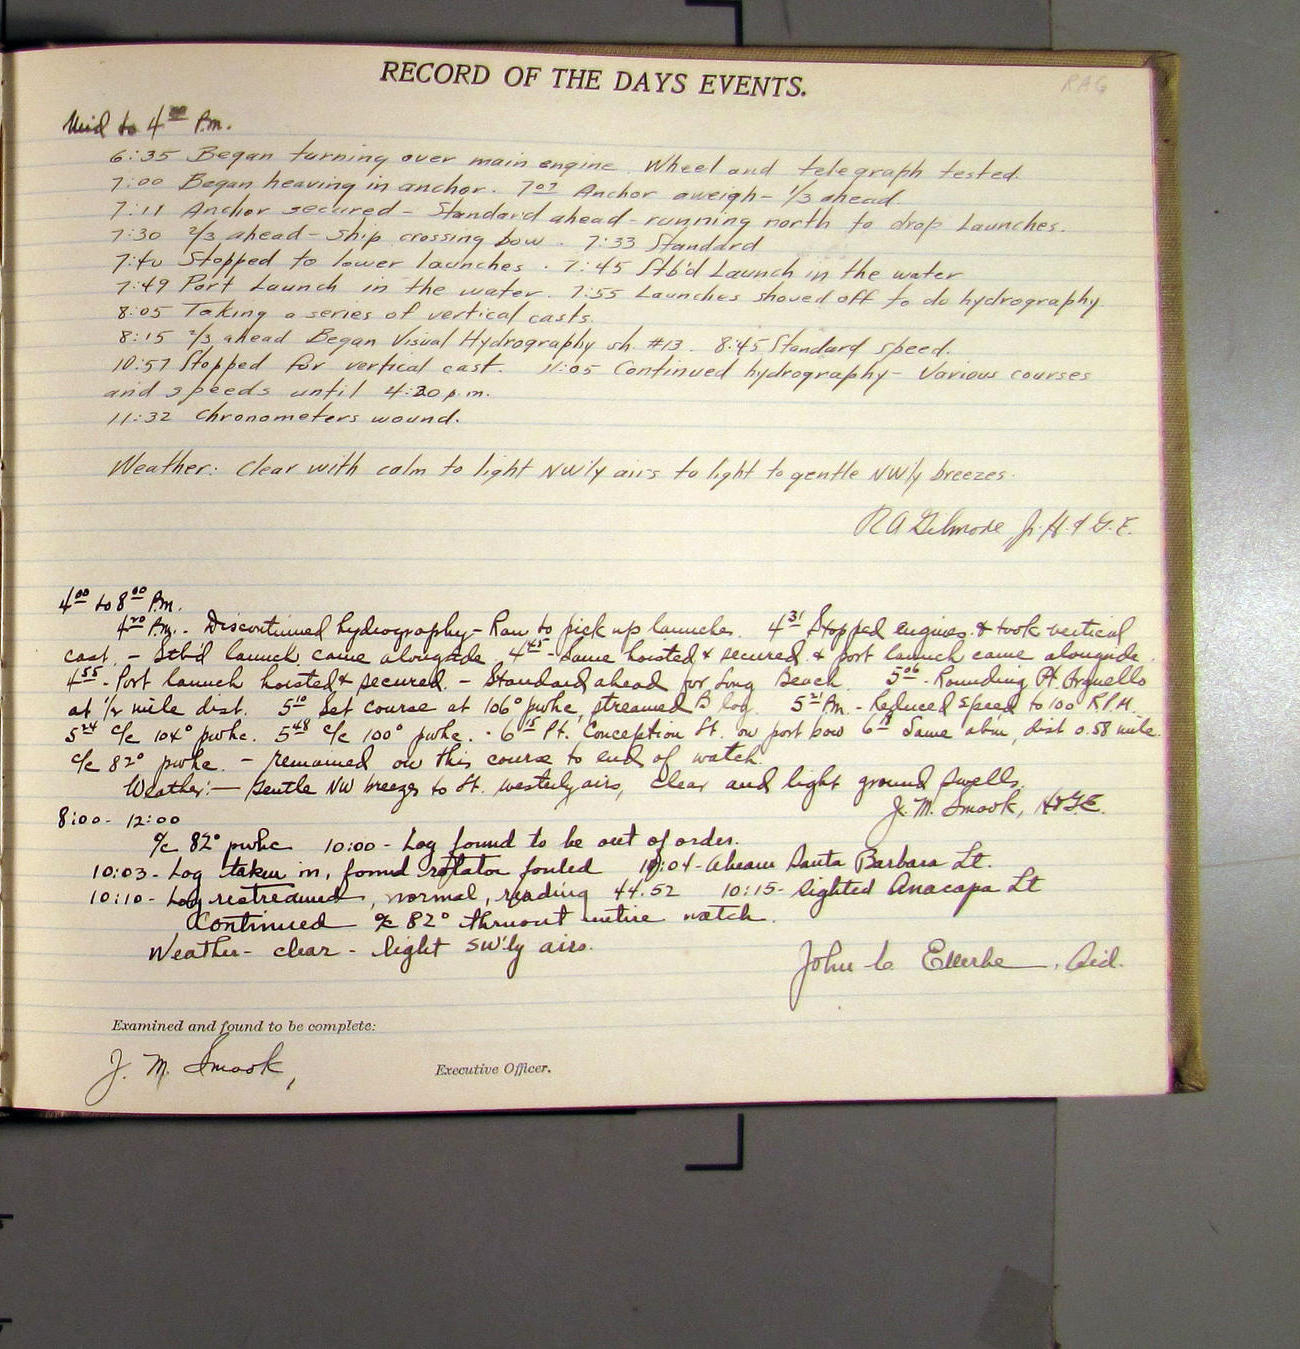 RECORD OF THE DAYS EVENTS.
RAG
Mid to 4⁰⁰ P.m.
6:35 Began turning over main engine. Wheel and telegraph tested.
7:00 Began heaving in anchor. 7⁰⁷ Anchor aweigh - 1/3 ahead.
7:11 Anchor secured - Standard ahead - running north to drop Launches.
7:30 2/3 ahead - ship crossing bow. 7:33 Standard
7:40 Stopped to lower launches. 7:45 Stb'd Launch in the water
7:49 Port Launch in the water. 7:55 Launches shoved off to do hydrography
8:05 Taking a series of vertical casts.
8:15 2/3 ahead Began Visual Hydrography sh. #13. 8:45 Standard speed.
10:57 Stopped for vertical cast. 11:05 Continued hydrography - Various courses
and speeds until 4:20 p.m.
11:32 Chronometers wound.
Weather: Clear with calm to light NW'ly airs to light to gentle NW'ly breezes.
R A Gilmore Jr. H. & G. E.
4⁰⁰ to 8⁰⁰ P.m.
4²⁰ P.m. - Discontinued hydrography - Ran to pick up launches. 4³¹ Stopped engines & took vertical
cast. - Stb'd launch came alongside 4⁴⁵ - Same hoisted & secured & port launch came alongside.
4⁵⁵ - Port launch hoisted & secured. - Standard ahead for Long Beach. 5⁰⁶ - Rounding Pt. Arguello
at 1/2 mile dist. 5¹⁰ Set course at 106° pwhc, streamed B log. 5²¹ P.m. - Reduced speed to 100 R.P.M.
5²⁴ c/c 104° pwhc. 5⁴⁸ c/c 100° pwhc. - 6¹⁵ Pt. Conception Lt. on port bow 6 Same abm, dist 0.58 mile.
c/c 82° pwhc. - remained on this course to end of watch.
Weather: - Gentle NW breezes to lt. westerly airs, clear and light ground swells.
J. M. Smook, H & G.E.
8:00 - 12:00
c/c 82° pwhc 10:00 - Log found to be out of order.
10:03 - Log taken in, found rotator fouled 10:04 - Abeam Santa Barbara Lt.
10:10 - Log restreamed, normal, reading 44.52 10:15 - sighted Anacapa Lt
Continued c/c 82° thruout entire watch.
Weather - clear - light SW'ly airs.
John C Ellerbe, Aid.
Examined and found to be complete:
J. M. Smook,
Executive Officer.